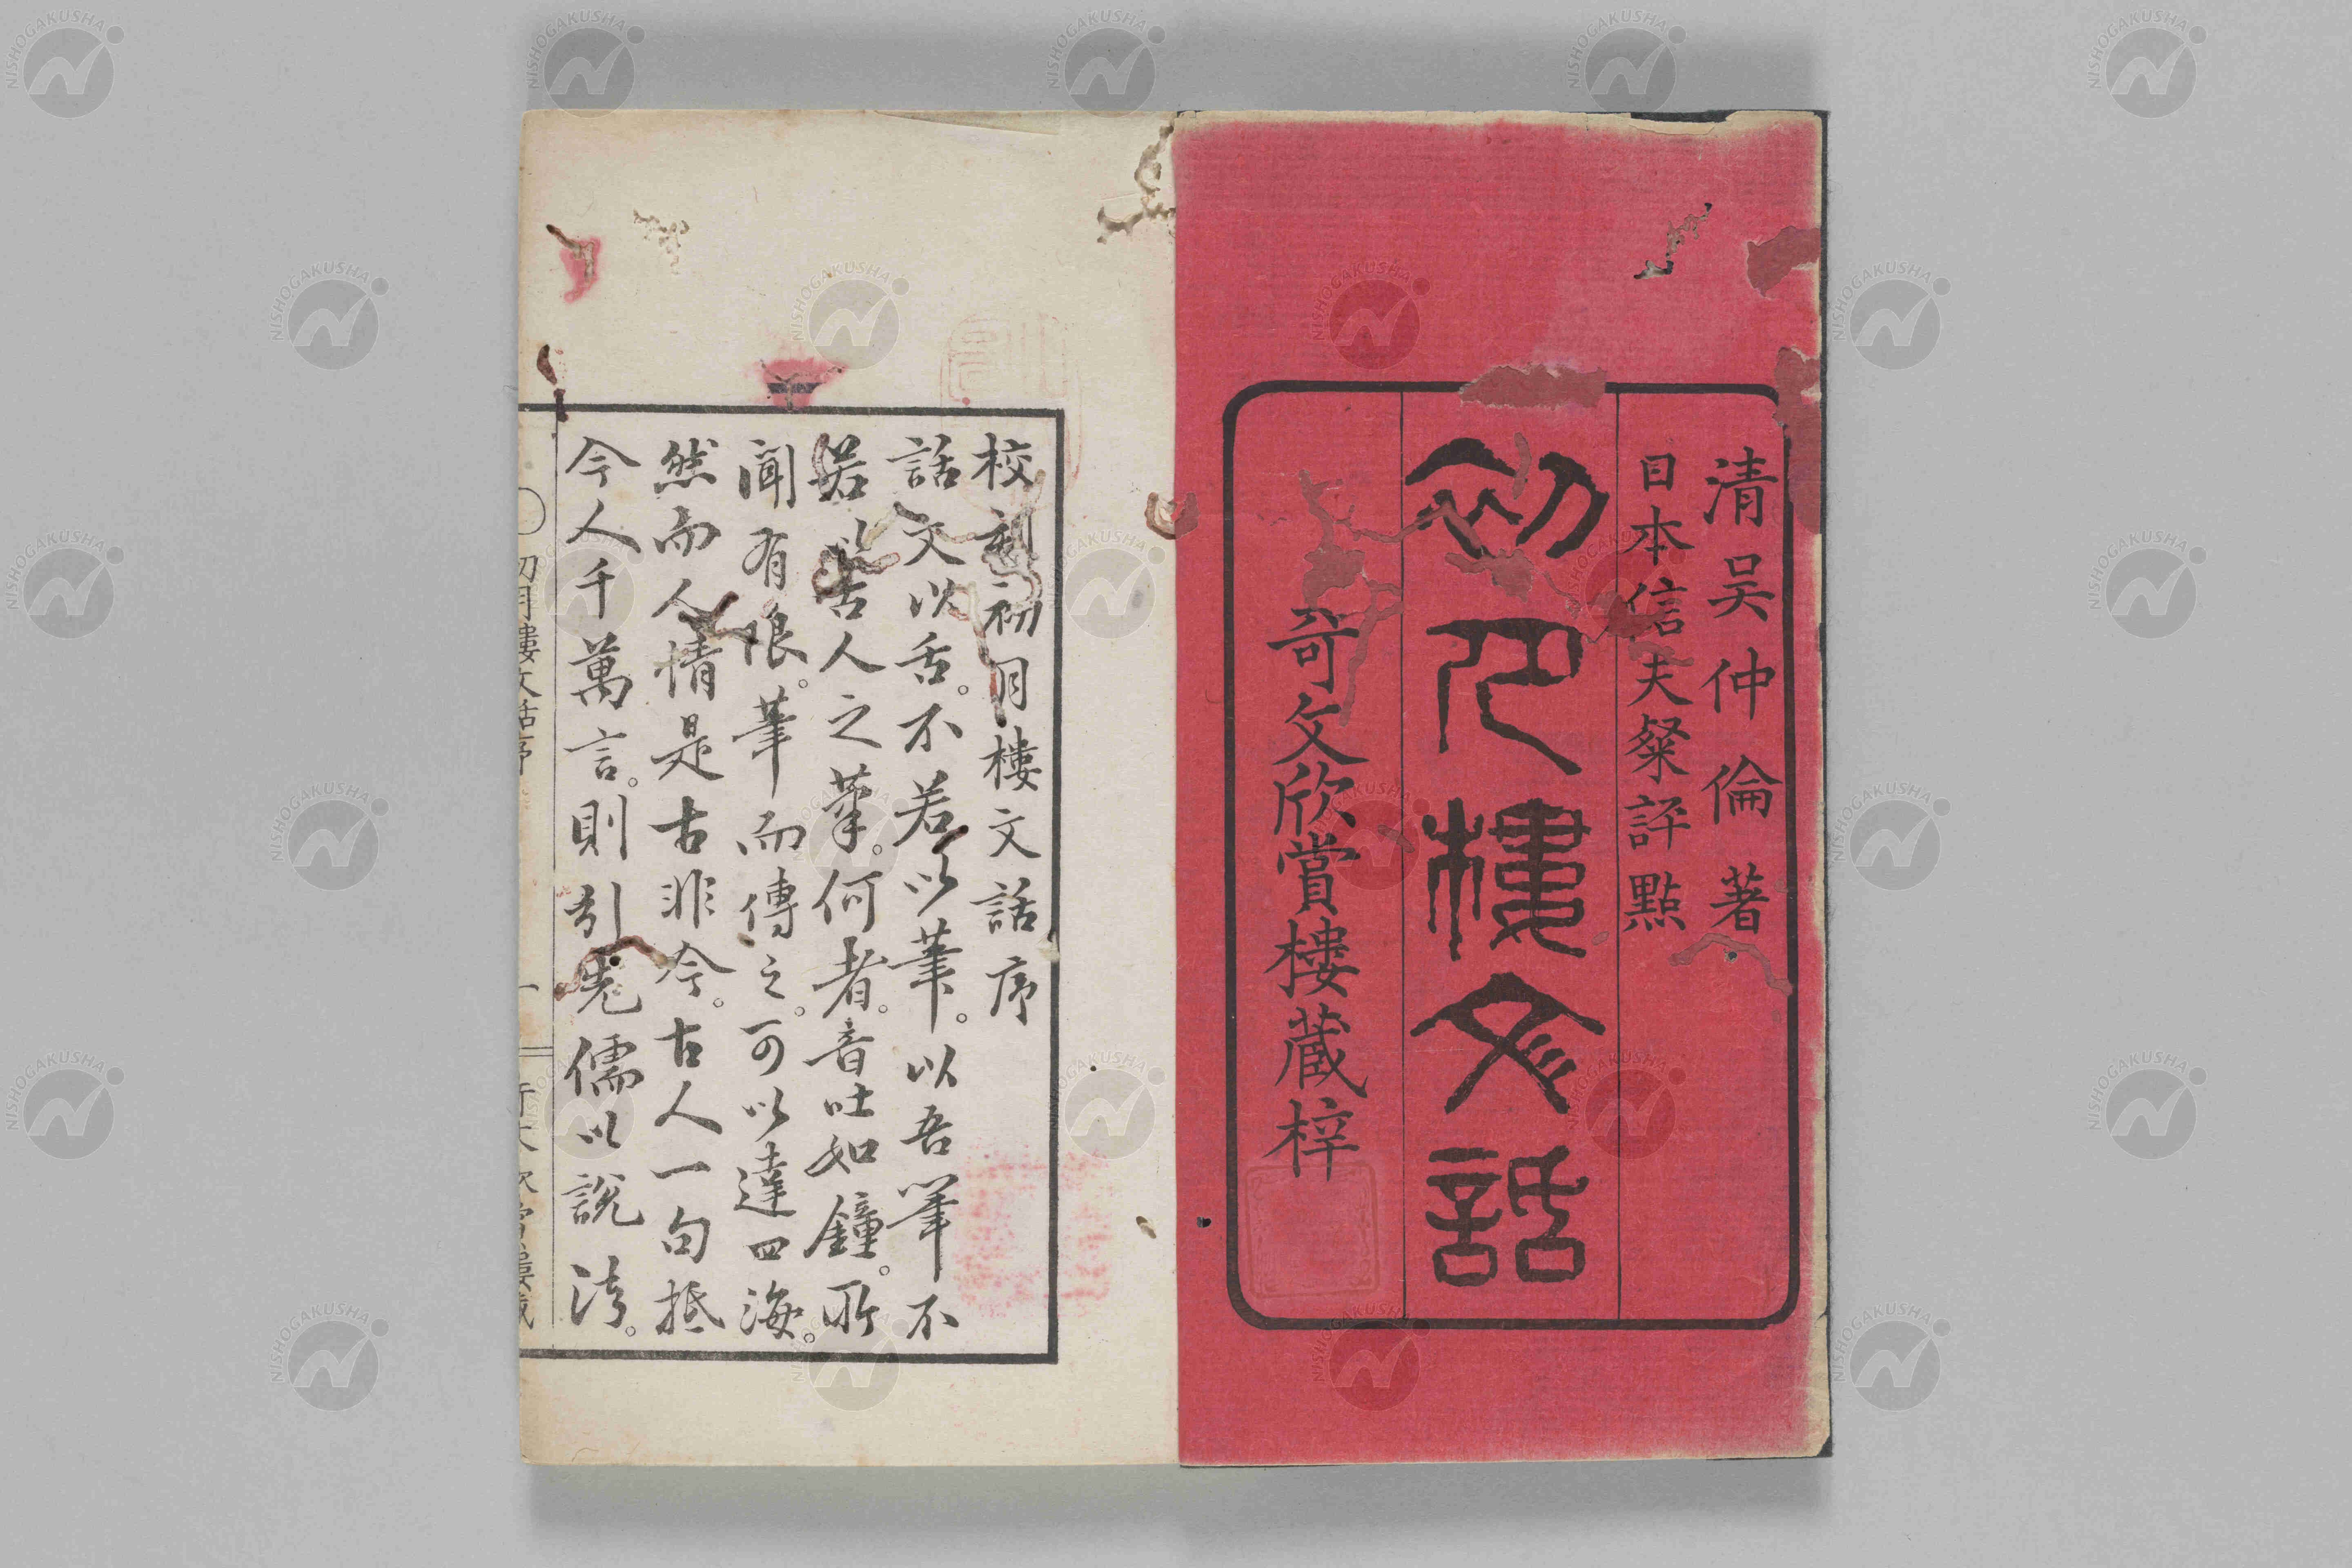 清吴仲倫著
日本信夫粲評點
初月樓文話
奇文欣賞樓蔵梓
校刻初月樓文話序
話文以舌。不若以筆。以吾筆不
若以古人之筆。何者。音吐如鐘。所
聞有限。筆而傳之。可以達四海。
然而人情是古非今。古人一句抵
今人千萬言。則引先儒以說法。
初月樓文話序
一
NISHOGAKUSHA